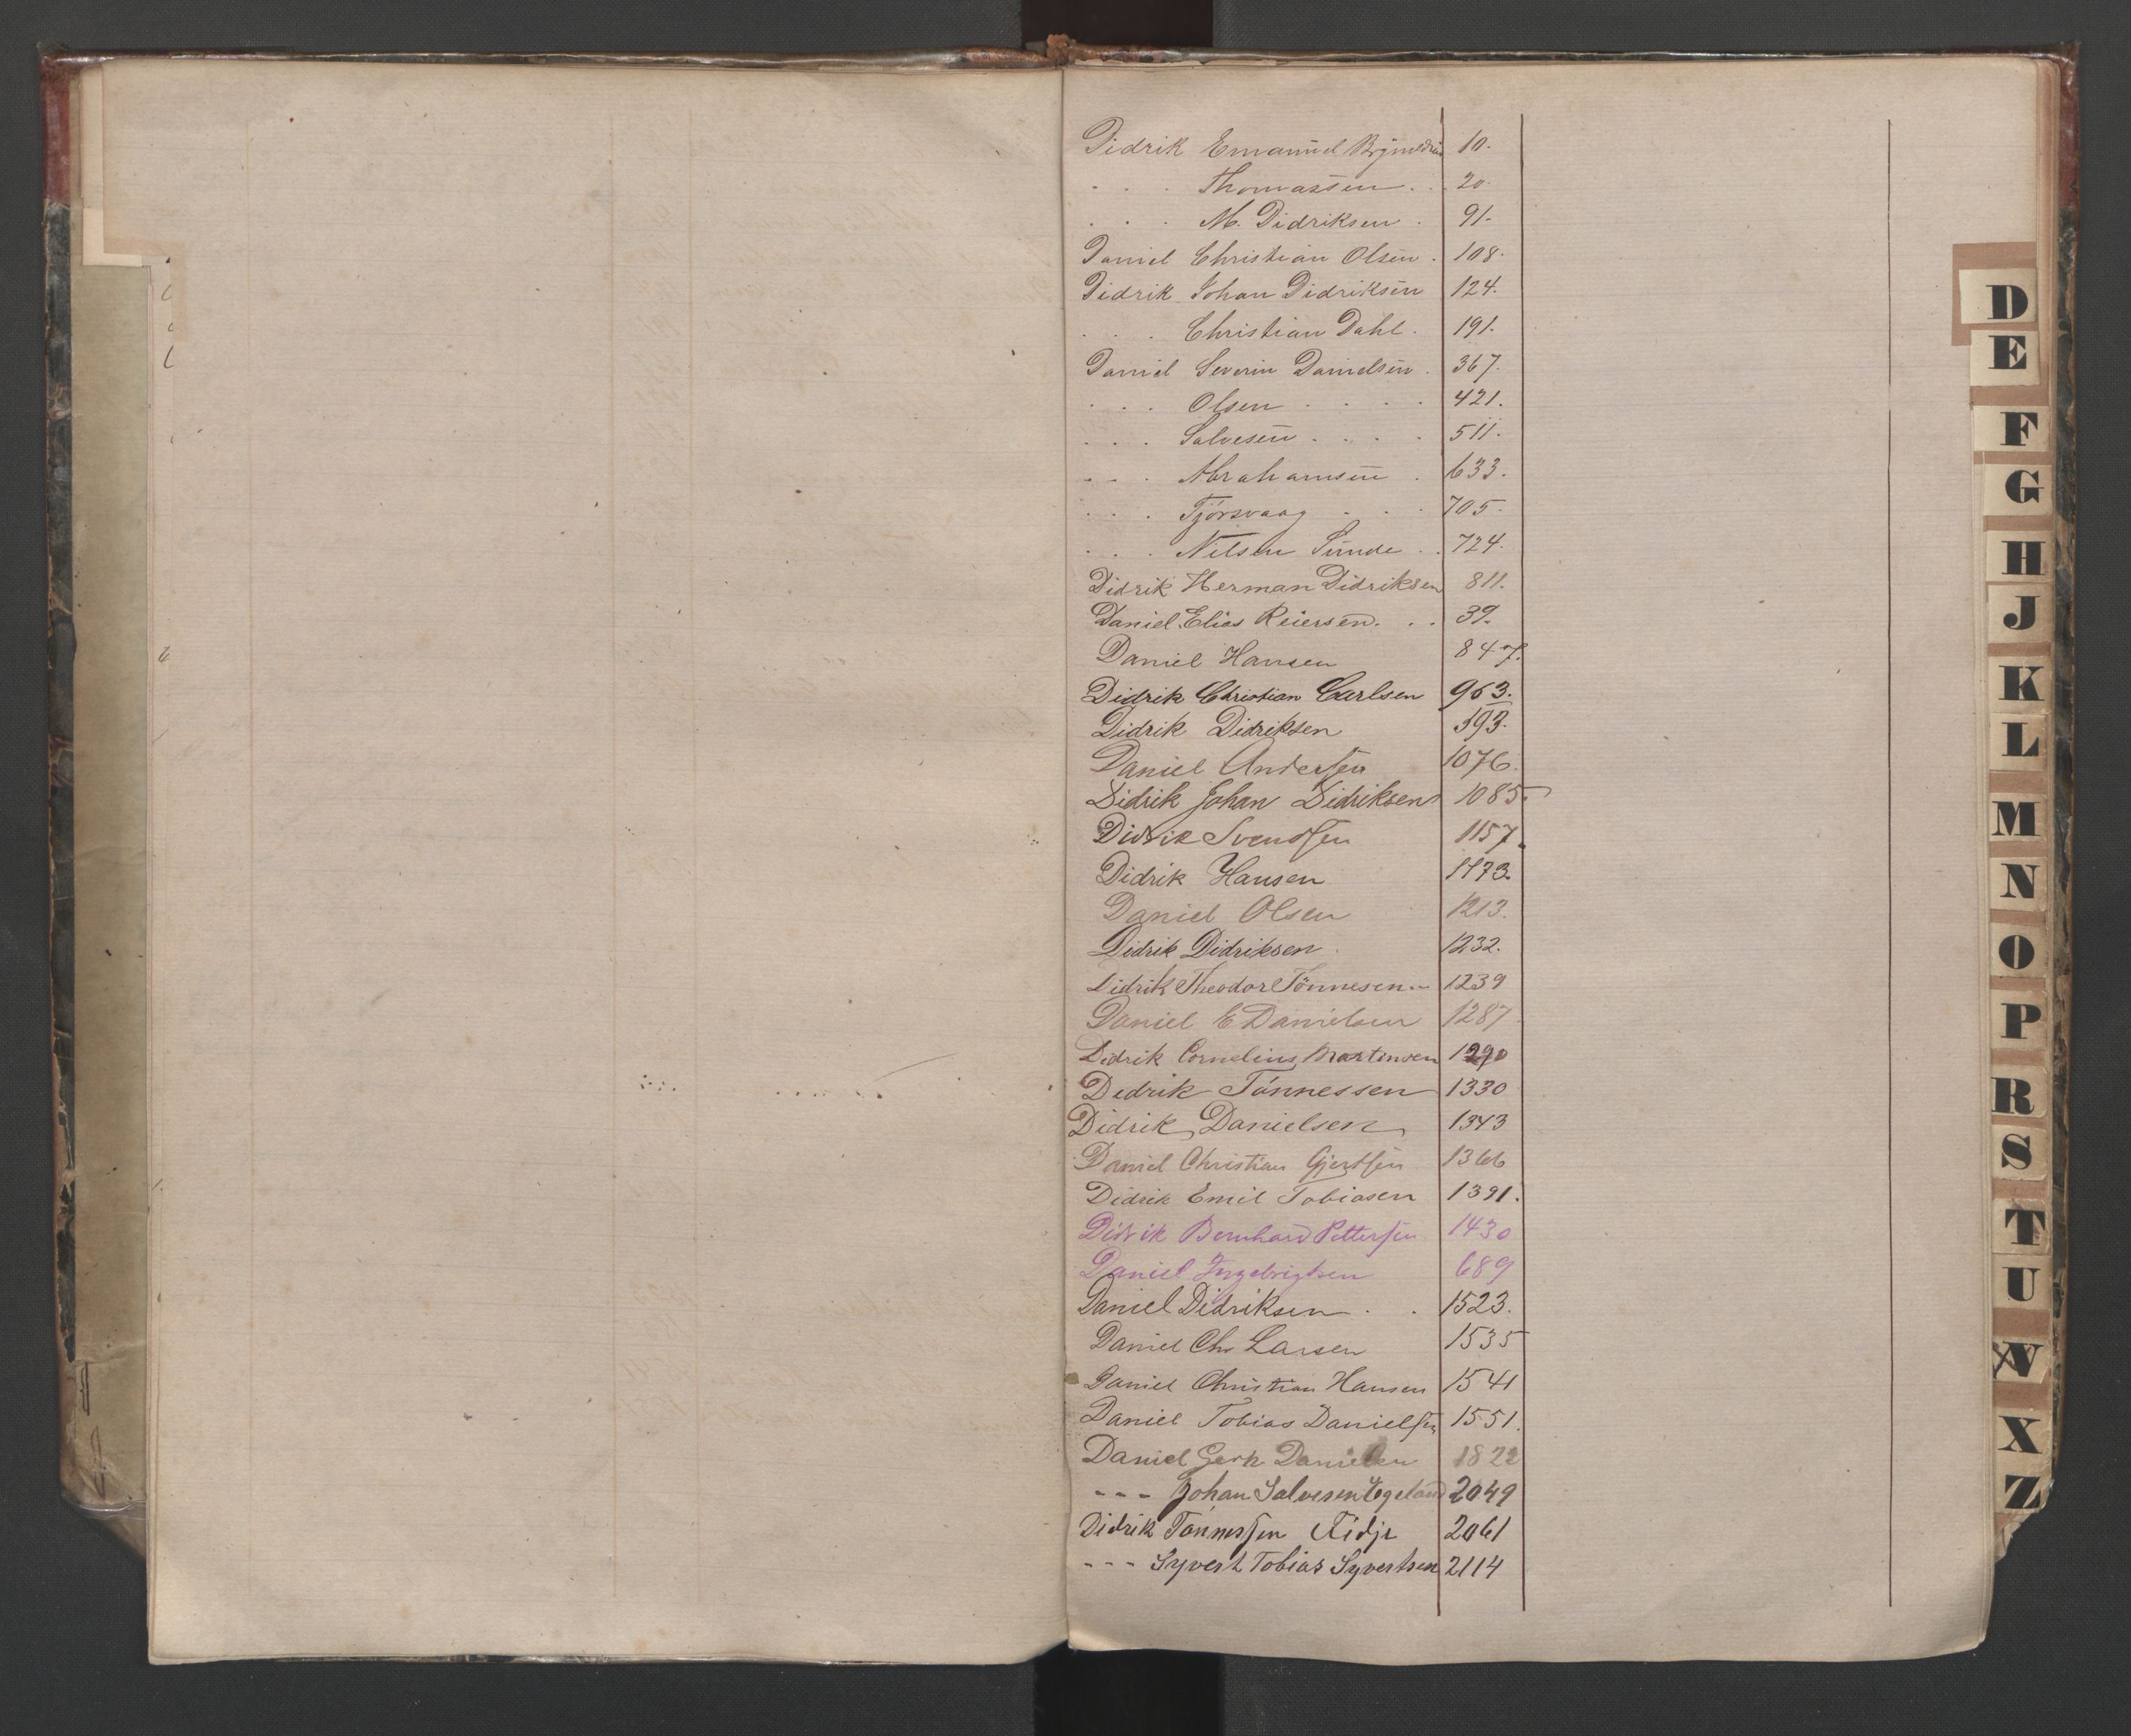 Didrik Emanuel 10.
. . . Thomassen . . 20.
. . . M. Didriksen . 91.
Daniel Christian Olsen . 108.
Didrik Johan Didriksen 124.
. . . Christian Dahl . 191.
Daniel Severin Danielsen . 367.
. . . Olsen . . . . 421.
. . . Salvesen . . . . 511.
. . . Abrahamsen . 633.
. . . Tjörsvaag . . . 705.
. . . Nilsen Sunde . . 724.
Didrik Herman Didriksen 811.
Daniel Elias Reiersen . . . 39.
Daniel Hansen 847.
Didrik Christian Carlsen 963.
Didrik Didriksen 393.
Daniel Andersen 1076.
Didrik Johan Didriksen 1085.
Didrik Svendsen 1157.
Didrik Hansen 1173.
Daniel Olsen 1213.
Didrik Didriksen . 1232.
Didrik Theodor Tönnesen 1239
Daniel E Danielsen 1287.
Didrik Cornelius Martinsen 1290
Dedrik Tönnessen 1330
Didrik Danielsen 1343
Daniel Christian Gjertsen 1366
Didrik Emil Tobiasen 1391.
Didrik Bernhard Pettersen 1430
Daniel Ingebrigtsen 689
Daniel Didriksen . . 1523.
Daniel Chr Larsen 1535
Daniel Christian Hansen 1541
Daniel Tobias Danielsen 1551.
Daniel Gerh Danielsen 1822
- - - Johan Salvesen Egeland 2049
Didrik Tönnessen 2061
- - - Syvert Tobias Syvertsen 2114
D
E
F
G
H
J
K
L
M
N
O
P
R
S
T
U
V
X
Z